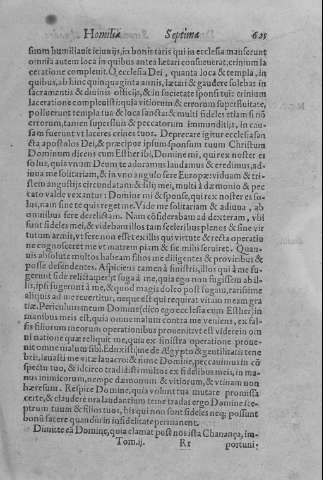 Homiliæ Septima 625
sium humiliauit ieiunijs, in bonis
omnia autem loca in quibus antea lætari consueuerat, crinium la
ceratione compleuit. O ecclesia Dei, quanta loca & templa, in
quibus, ab hinc quinquaginta annis, lætari & gaudere solebas in
sacramentis & diuinis officijs, & in societate sponsi tui: crinium
laceratione compleuisti: quia vitiorum & errorum superfluitate,
polluerunt templa tua & loca sancta: & multi fideles etiam si nõ
errorum, tamen superfluis & peccatorum immunditijs, in cau-
sa fuerunt vt laceres crines tuos. Deprecare igitur ecclesia san
cta apostolos Dei, & præcipue ipsum sponsum tuum Christum
Dominum dicens cum Esther ibi, Domine mi, qui rex noster es
solus, quia vnum Deum te adoramus laudamus & credimus, ad-
iuua me solitariam, & in vno angulo fere Europæ viduam & tri-
stem angustijs circundatam: & filij mei, multi à dæmonio & pec
cato valde vexantur: Domine mi & sponse, qui rex noster es so-
lus, nam sine te quis reget me. Vide me solitariam & adiuua, ab
omnibus fere derelictam. Nam cõsiderabam ad dexteram, vbi
sunt fideles mei, & videbam illos tam sceleribus plenos & sine vir
tutum armis, vt fere non esset ex illis qui virtute & recta operatio
ne cognosceret me vt matrem piam & sic mihi seruiret. Quam-
uis absolute multos habeam filios me diligentes & prouictus &
posse defendentes. Aspiciens tamen à sinistris, illos qui à me fu-
gerunt fide relicta aperijt fuga à me, quia ego non fugissem ab il-
lis, ipsi fugerunt à me, & quod magis doleo post fugam, rarissime
aliquis ad me reuertitur, neque est qui requirat vitam meam gra
tiæ. Periculum meum Domine (dico ego ecclesia cum Esther) in
manibus meis est, quia omne malum contra me veniens, ex fal-
sis filiorum meorum operationibus prouenit: vt est viderim om
ni natione quæ reliquit me, quia ex sinistra operatione proue-
nit omne malum sibi. Eduxisti me de Ægypto & gentilitatis tene
bris, lauasti me vitæ lauacro: & nunc Domine, peccauimus in cõ
spectu tuo, & idcirco tradidisti multos ex fidelibus meis, in ma-
nus inimicorum, nempe dæmonum & vitiorum, & vtinam non
hæresum. Respice Domine, quia volunt tua mutare promissa
certe, & claudere ora laudantium te: ne tradas ergo Domine sce-
ptrum tuum & filios tuos, his qui non sunt fideles neque possunt
bonũ facere quandiu in infidelitate permanent.
Dimitte eã Domine, quia clamat post nos ista Chananæa, im-
Tom. ij. Rr portuni-